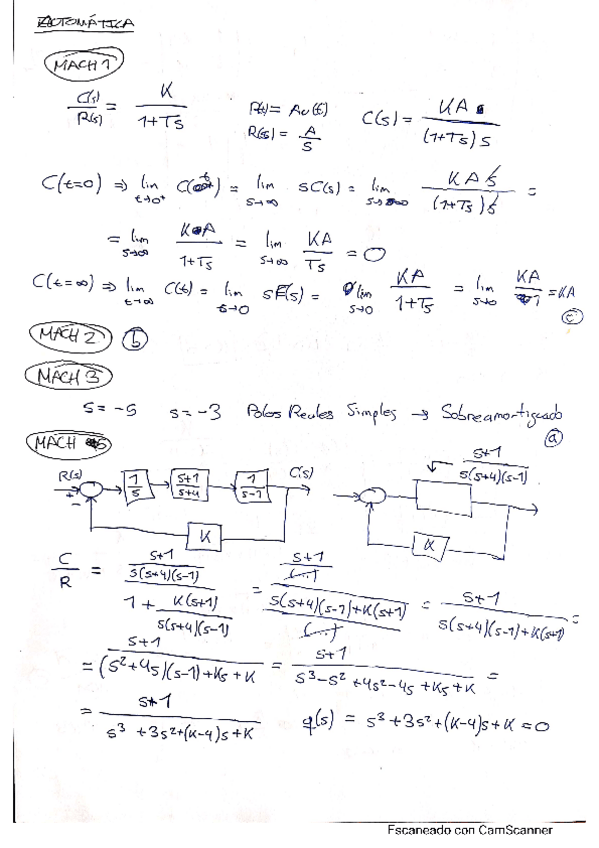 AUTOMÁTICA
MACH 1
C(s)/R(s) = K/(1+Ts)    R(t) = Au(t)    R(s) = A/s    C(s) = KA/((1+Ts)s)
C(t=0) ⇒ lim t→0⁺ C(t) = lim s→∞ sC(s) = lim s→∞ KAs/((1+Ts)s) =
= lim s→∞ KA/(1+Ts) = lim s→∞ KA/(Ts) = 0
C(t=∞) ⇒ lim t→∞ C(t) = lim s→0 sF(s) = lim s→0 KA/(1+Ts) = lim s→0 KA/1 = KA
c
MACH 2 b
MACH 3
s = -5 s = -3 Polos Reales Simples → Sobreamortiguado
a
MACH 5
R(s) + - 1/s (s+1)/(s+4) 1/(s-1) C(s) K
(s+1)/(s(s+4)(s-1)) K
C/R = ((s+1)/(s(s+4)(s-1)))/(1 + K(s+1)/(s(s+4)(s-1))) = ((s+1)/(...))/((s(s+4)(s-1)+K(s+1))/(...)) = (s+1)/(s(s+4)(s-1)+K(s+1)) =
= (s+1)/((s²+4s)(s-1)+Ks+K) = (s+1)/(s³-s²+4s²-4s+Ks+K) =
= (s+1)/(s³+3s²+(K-4)s+K)    q(s) = s³+3s²+(K-4)s+K = 0
Escaneado con CamScanner